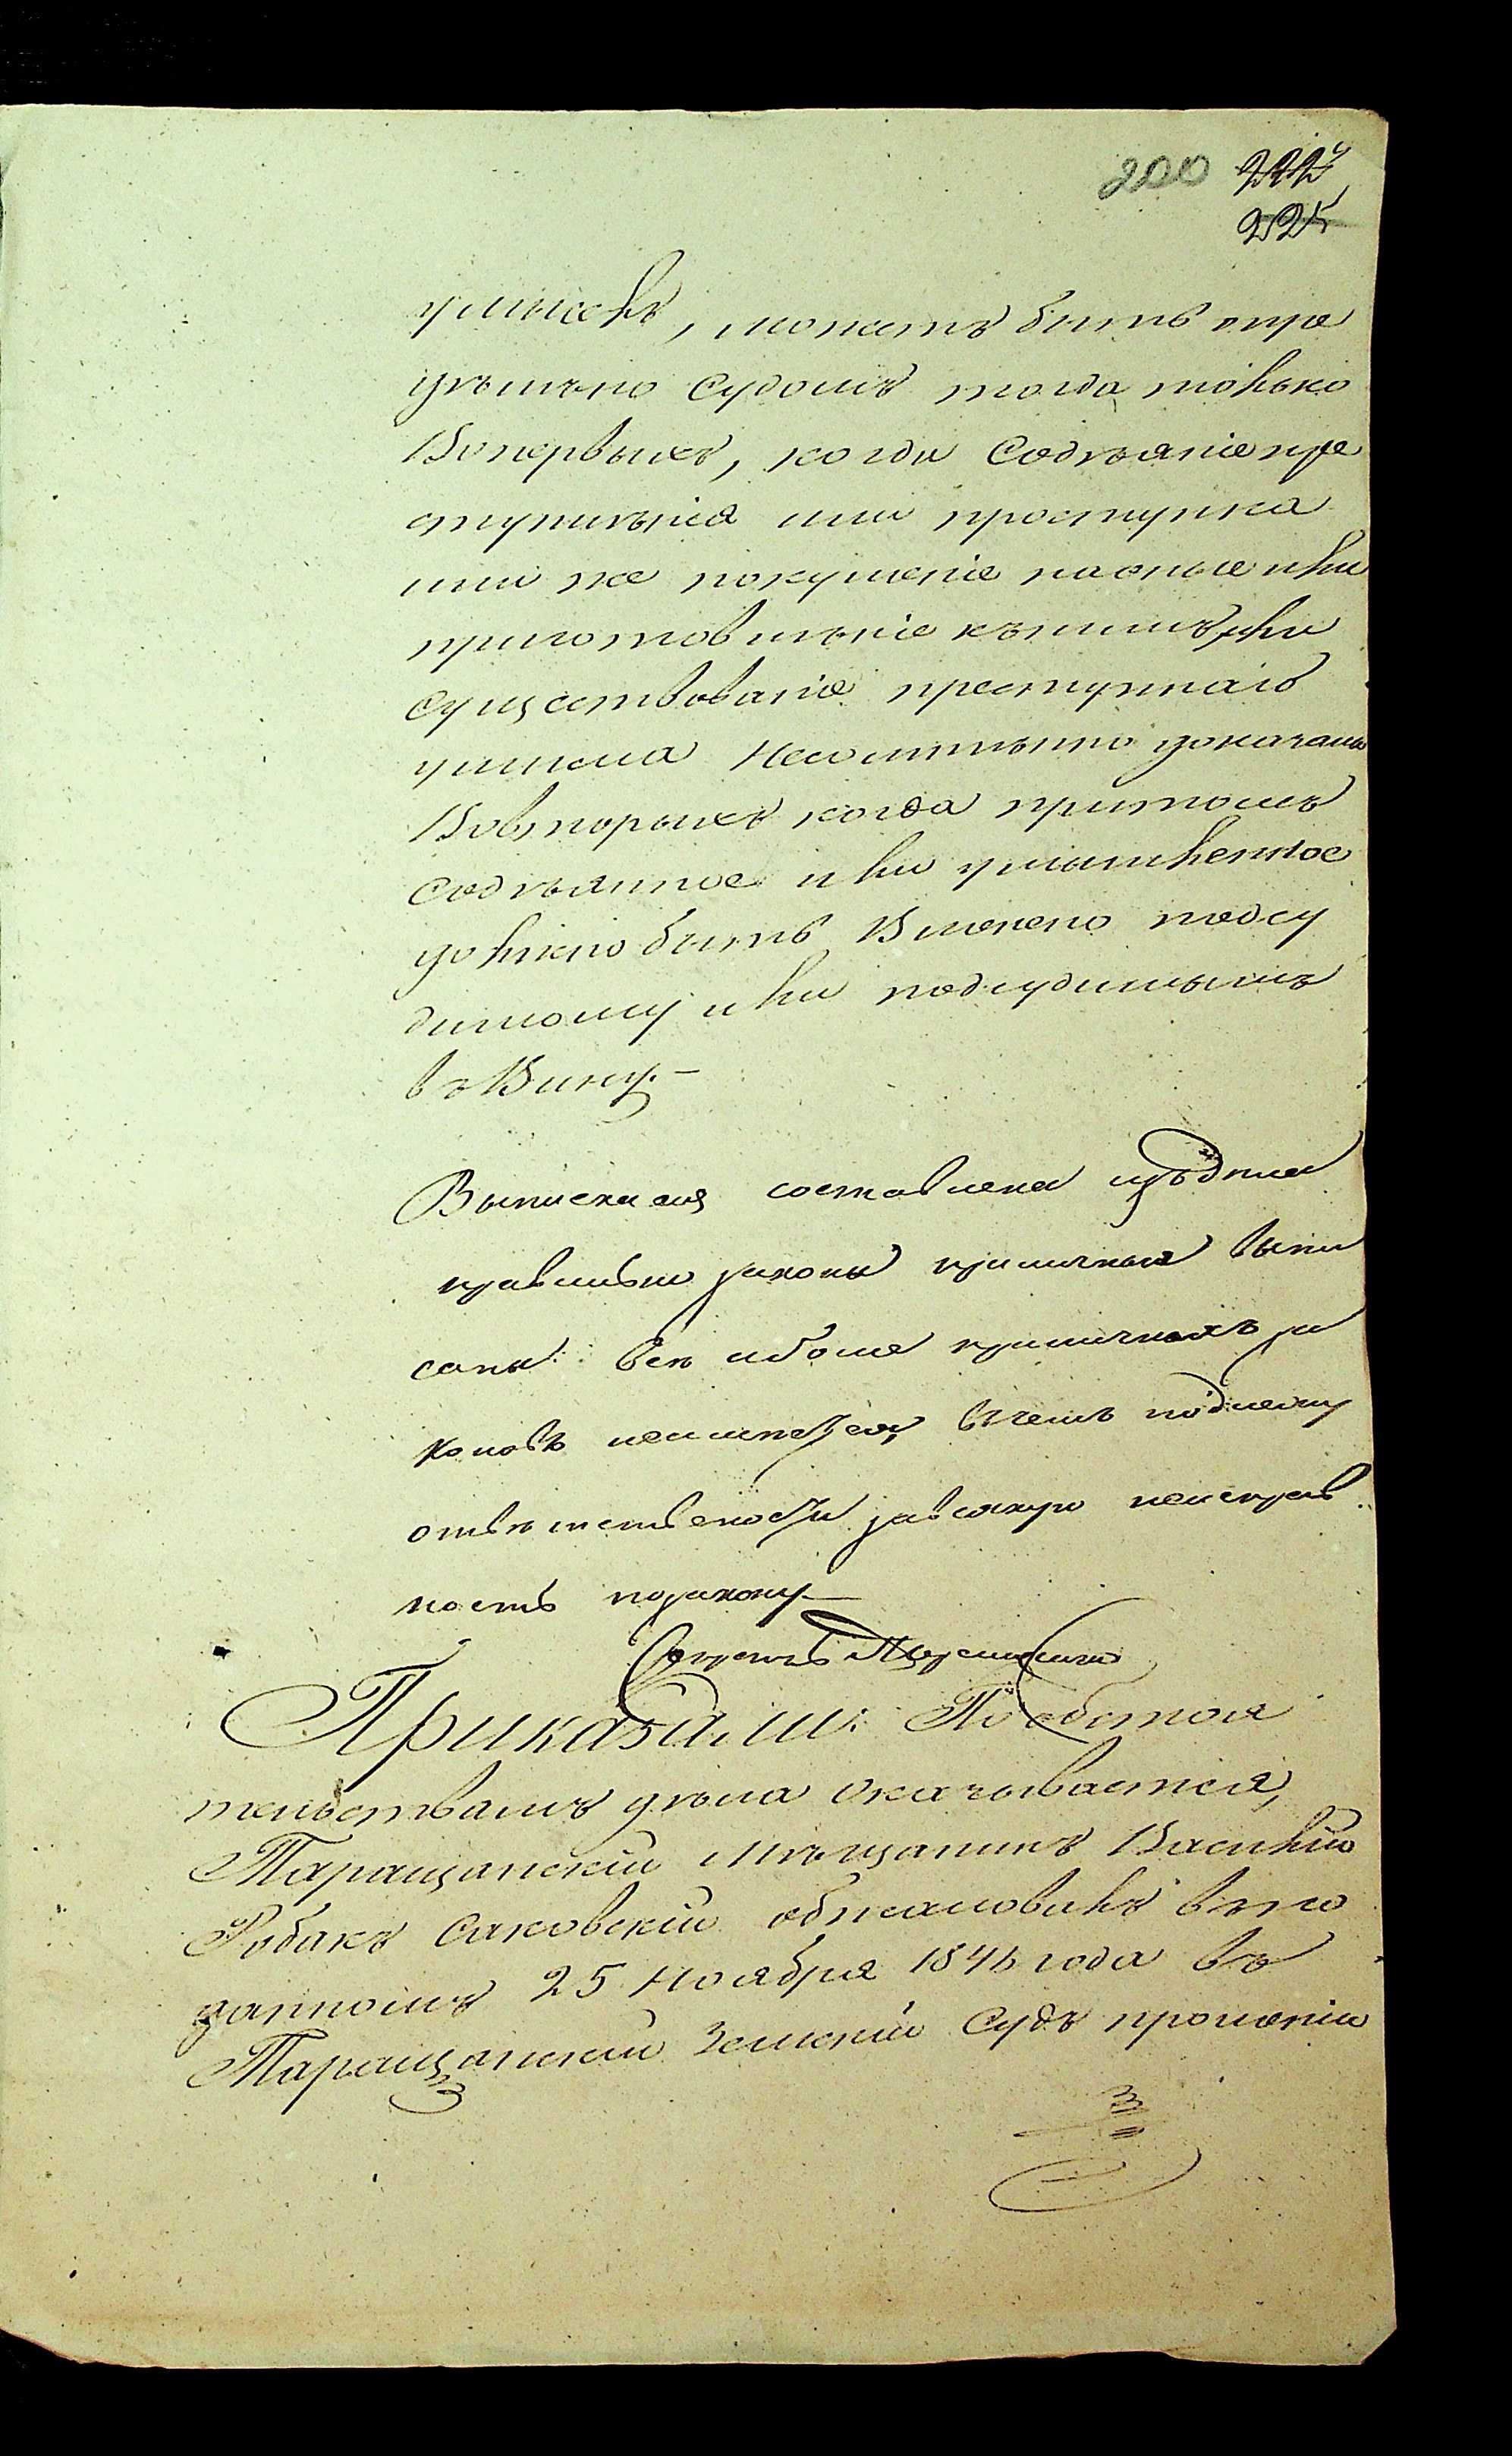 200 222
225
умыселъ, можетъ быть опре
дѣлено Судомъ тогда только
Вопервыхъ, когда Содѣяніе пре
ступленія или проступка
или же покушеніе на оные или
приготовленіе къ нимъ, или
существованіе преступнаго
умысла несомнѣнно доказаны
Вовторыхъ когда притомъ
содѣянное или умышленное
должно быть Вменено подсу
димому или подсудимымъ
въ Вину.
Выписка сія составлена изъ дѣла
правильно законы приличныя выпи
саны всѣ и болѣе приличныхъ за
коновъ неимѣется, въ чемъ подлежу
отвѣтственности за всякую неисправ
ность по закону
Секретарь
Приказали: По обстоя
тельствамъ дѣла оказывается,
Таращанскій мѣщанинъ Василій
Робакъ Саковскій обжаловалъ в по
данномъ 25 Ноября 1846 года въ
Таращанскій Земскій Судъ прошеніи